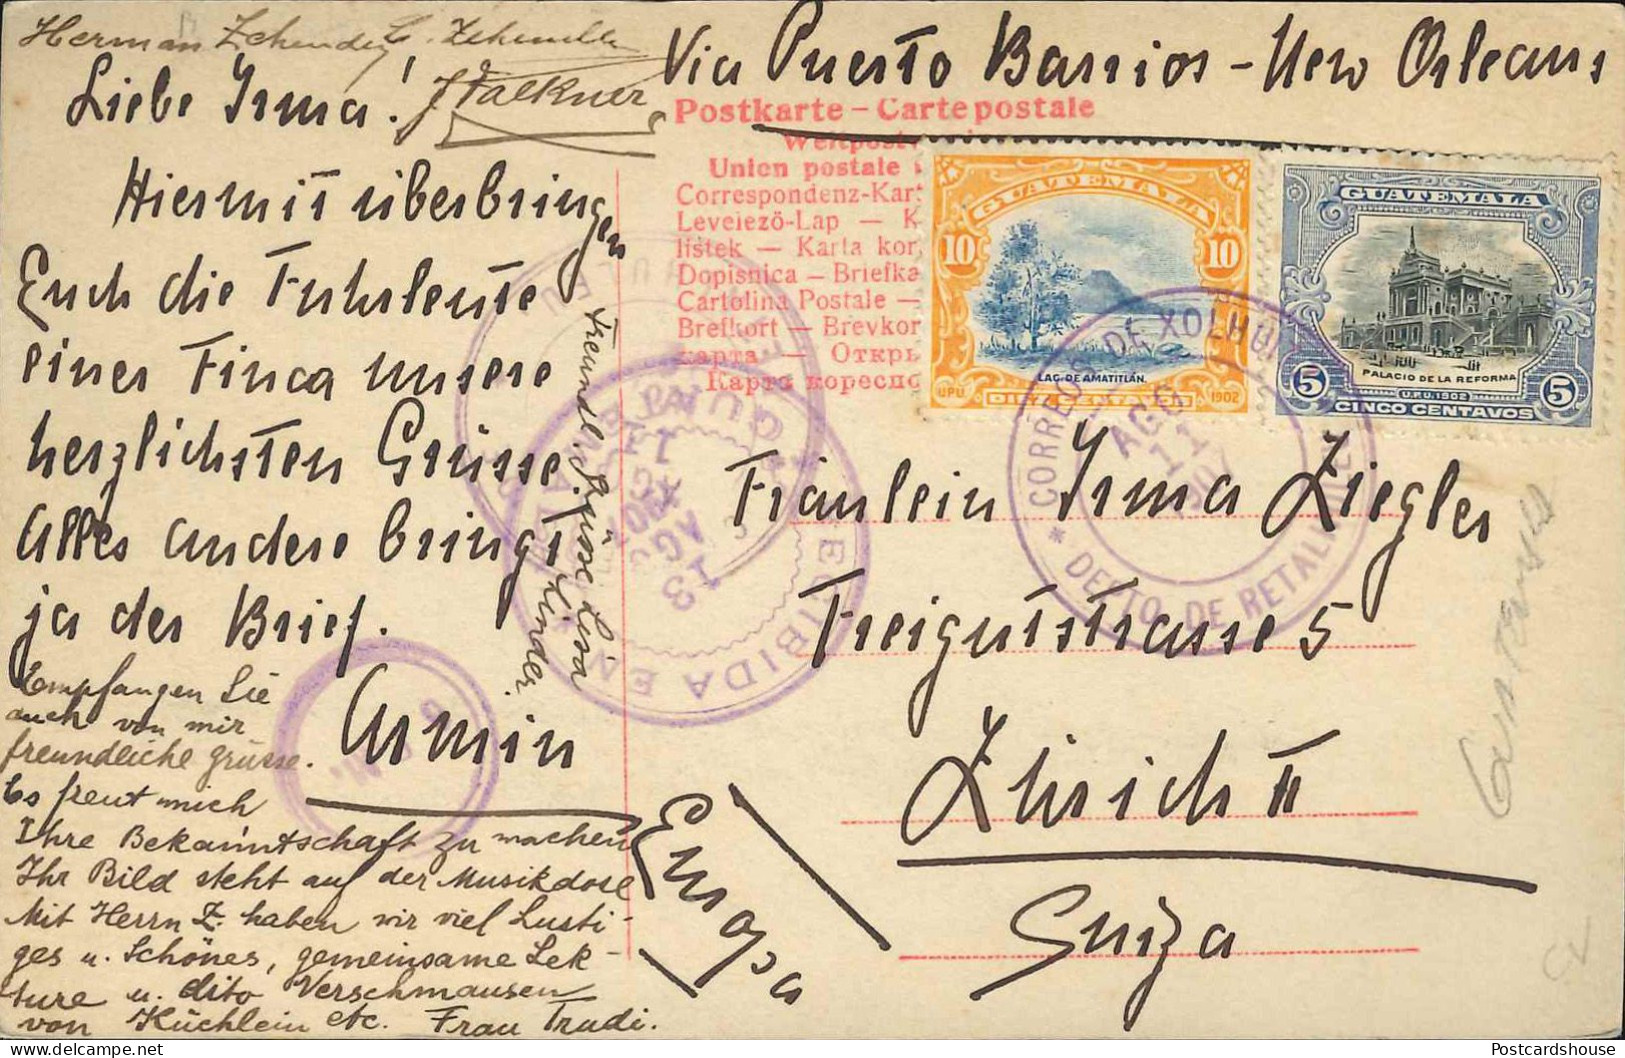 Herman Zehender
Liebe Irma!
J Falkner
Hiermit überbringen
Euch die Fuhrleute
einer Finca unsere
herzlichsten Grüsse.
Alles andere bringt
ja der Brief.
Armin
Freundl. Grüsse Lisa
Linder
Empfangen Sie
auch von mir
freundliche grüsse.
Es freut mich
Ihre Bekanntschaft zu machen
Ihr Bild steht auf der Musikdose
Mit Herrn Z. haben wir viel Lusti-
ges u. Schönes, gemeinsame Lek-
ture u. dito Verschmausen
von Küchlein etc. Frau Trudi.
Via Puerto Barrios - New Orleans
Postkarte – Carte postale
Weltpost
Union postale
Correspondenz-Kar
Levelező-Lap — K
lístek — Karta kor
Dopisnica — Briefka
Cartolina Postale —
Brefkort — Brevkor
карта — Откры
Карта кореспо
GUATEMALA
10 10
LAG. DE AMATITLÁN.
UPU DIEZ CENTAVOS 1902
GUATEMALA
PALACIO DE LA REFORMA
5 U.P.U. 1902 5
CINCO CENTAVOS
CORREOS DE XOLHUITZ
AGO
11
* DEPTO. DE RETALHULEU
RECIBIDA EN
13
AGO
Fräulein Irma Ziegler
Freigutstrasse 5
Zürich II
Suiza
Europa
Postcardshouse